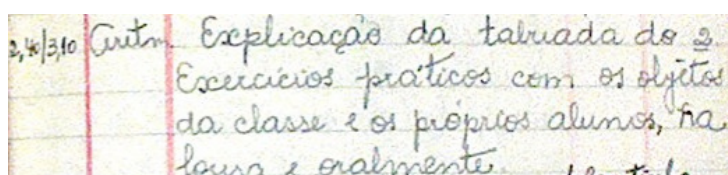 2,40/3,10 Aritm. Explicação da tabuada do 2
Exercícios práticos com os objetos
da classe e os próprios alunos, na
lousa e oralmente.